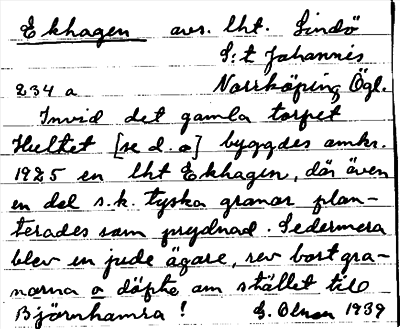 Ekhagen avs. lht. Lindö
S:t Johannis
234 a Norrköping, Ögl.
Invid det gamla torpet
Hultet [se d. o] byggdes omkr.
1925 en lht Ekhagen, där även
en del s.k. tyska granar plan-
terades som prydnad. Sedermera
blev en jude ägare, rev bort gra-
narna o döpte om stället till
Björnhamra! E. Olsson 1939